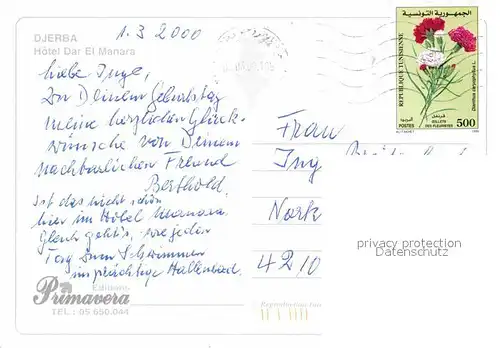 DJERBA
Hôtel Dar El Manara
1.3 2000
liebe Inge,
Zu Deinem Geburtstag
meine herzlichen Glück-
wünsche von Deinem
nachbarlichen Freund
Berthold.
Ist das nicht schön
hier im Hôtel Manara.
Gleich geht's, wie jeden
Tag zum Schwimmen
ins prächtige Hallenbad.
Editions
Primavera
TEL.: 05 650.044
الجمهورية التونسية
REPUBLIQUE TUNISIENNE
Dianthus caryophyllus L.
قرنفل
البريد
POSTES
OEILLETS
DES FLEURISTES
500
Frau
Ing
Nork
4210
privacy protection
Datenschutz